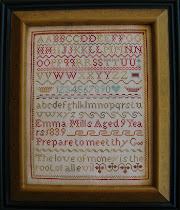 AABBCCDDEEFFGG
HHIIJJKKLLMMNN
OOPPQQRRSSTTUU
VVWWXXYYZZ
1234567890
abcdefghiklmnopqrstu
vwxyz
Emma Mills Aged 9 Years
1839
Prepare to meet thy Go
The love of money is the
root of all evil